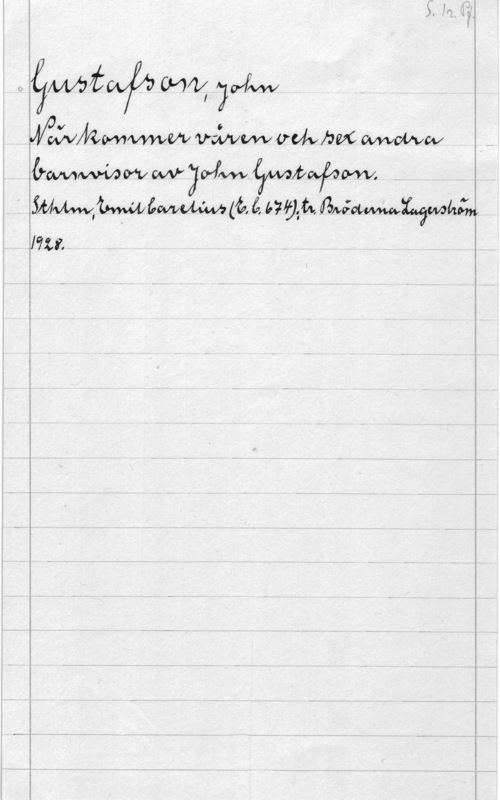 S. 1r. Pf.
Gustafson, John
När kommer våren och sex andra
barnvisor av John Gustafson.
Sthlm, Emil Carelius (E. C. 674), tr. Bröderna Lagerström
1928.